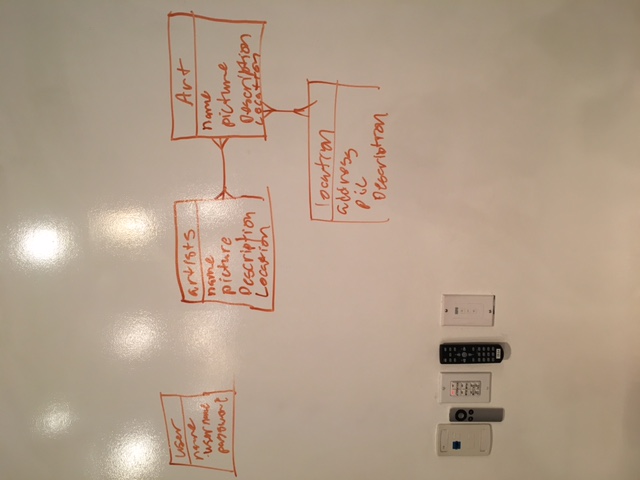 user
name
username
password
artists
name
picture
Description
Location
Art
name
picture
Description
Location
location
address
pic
Description